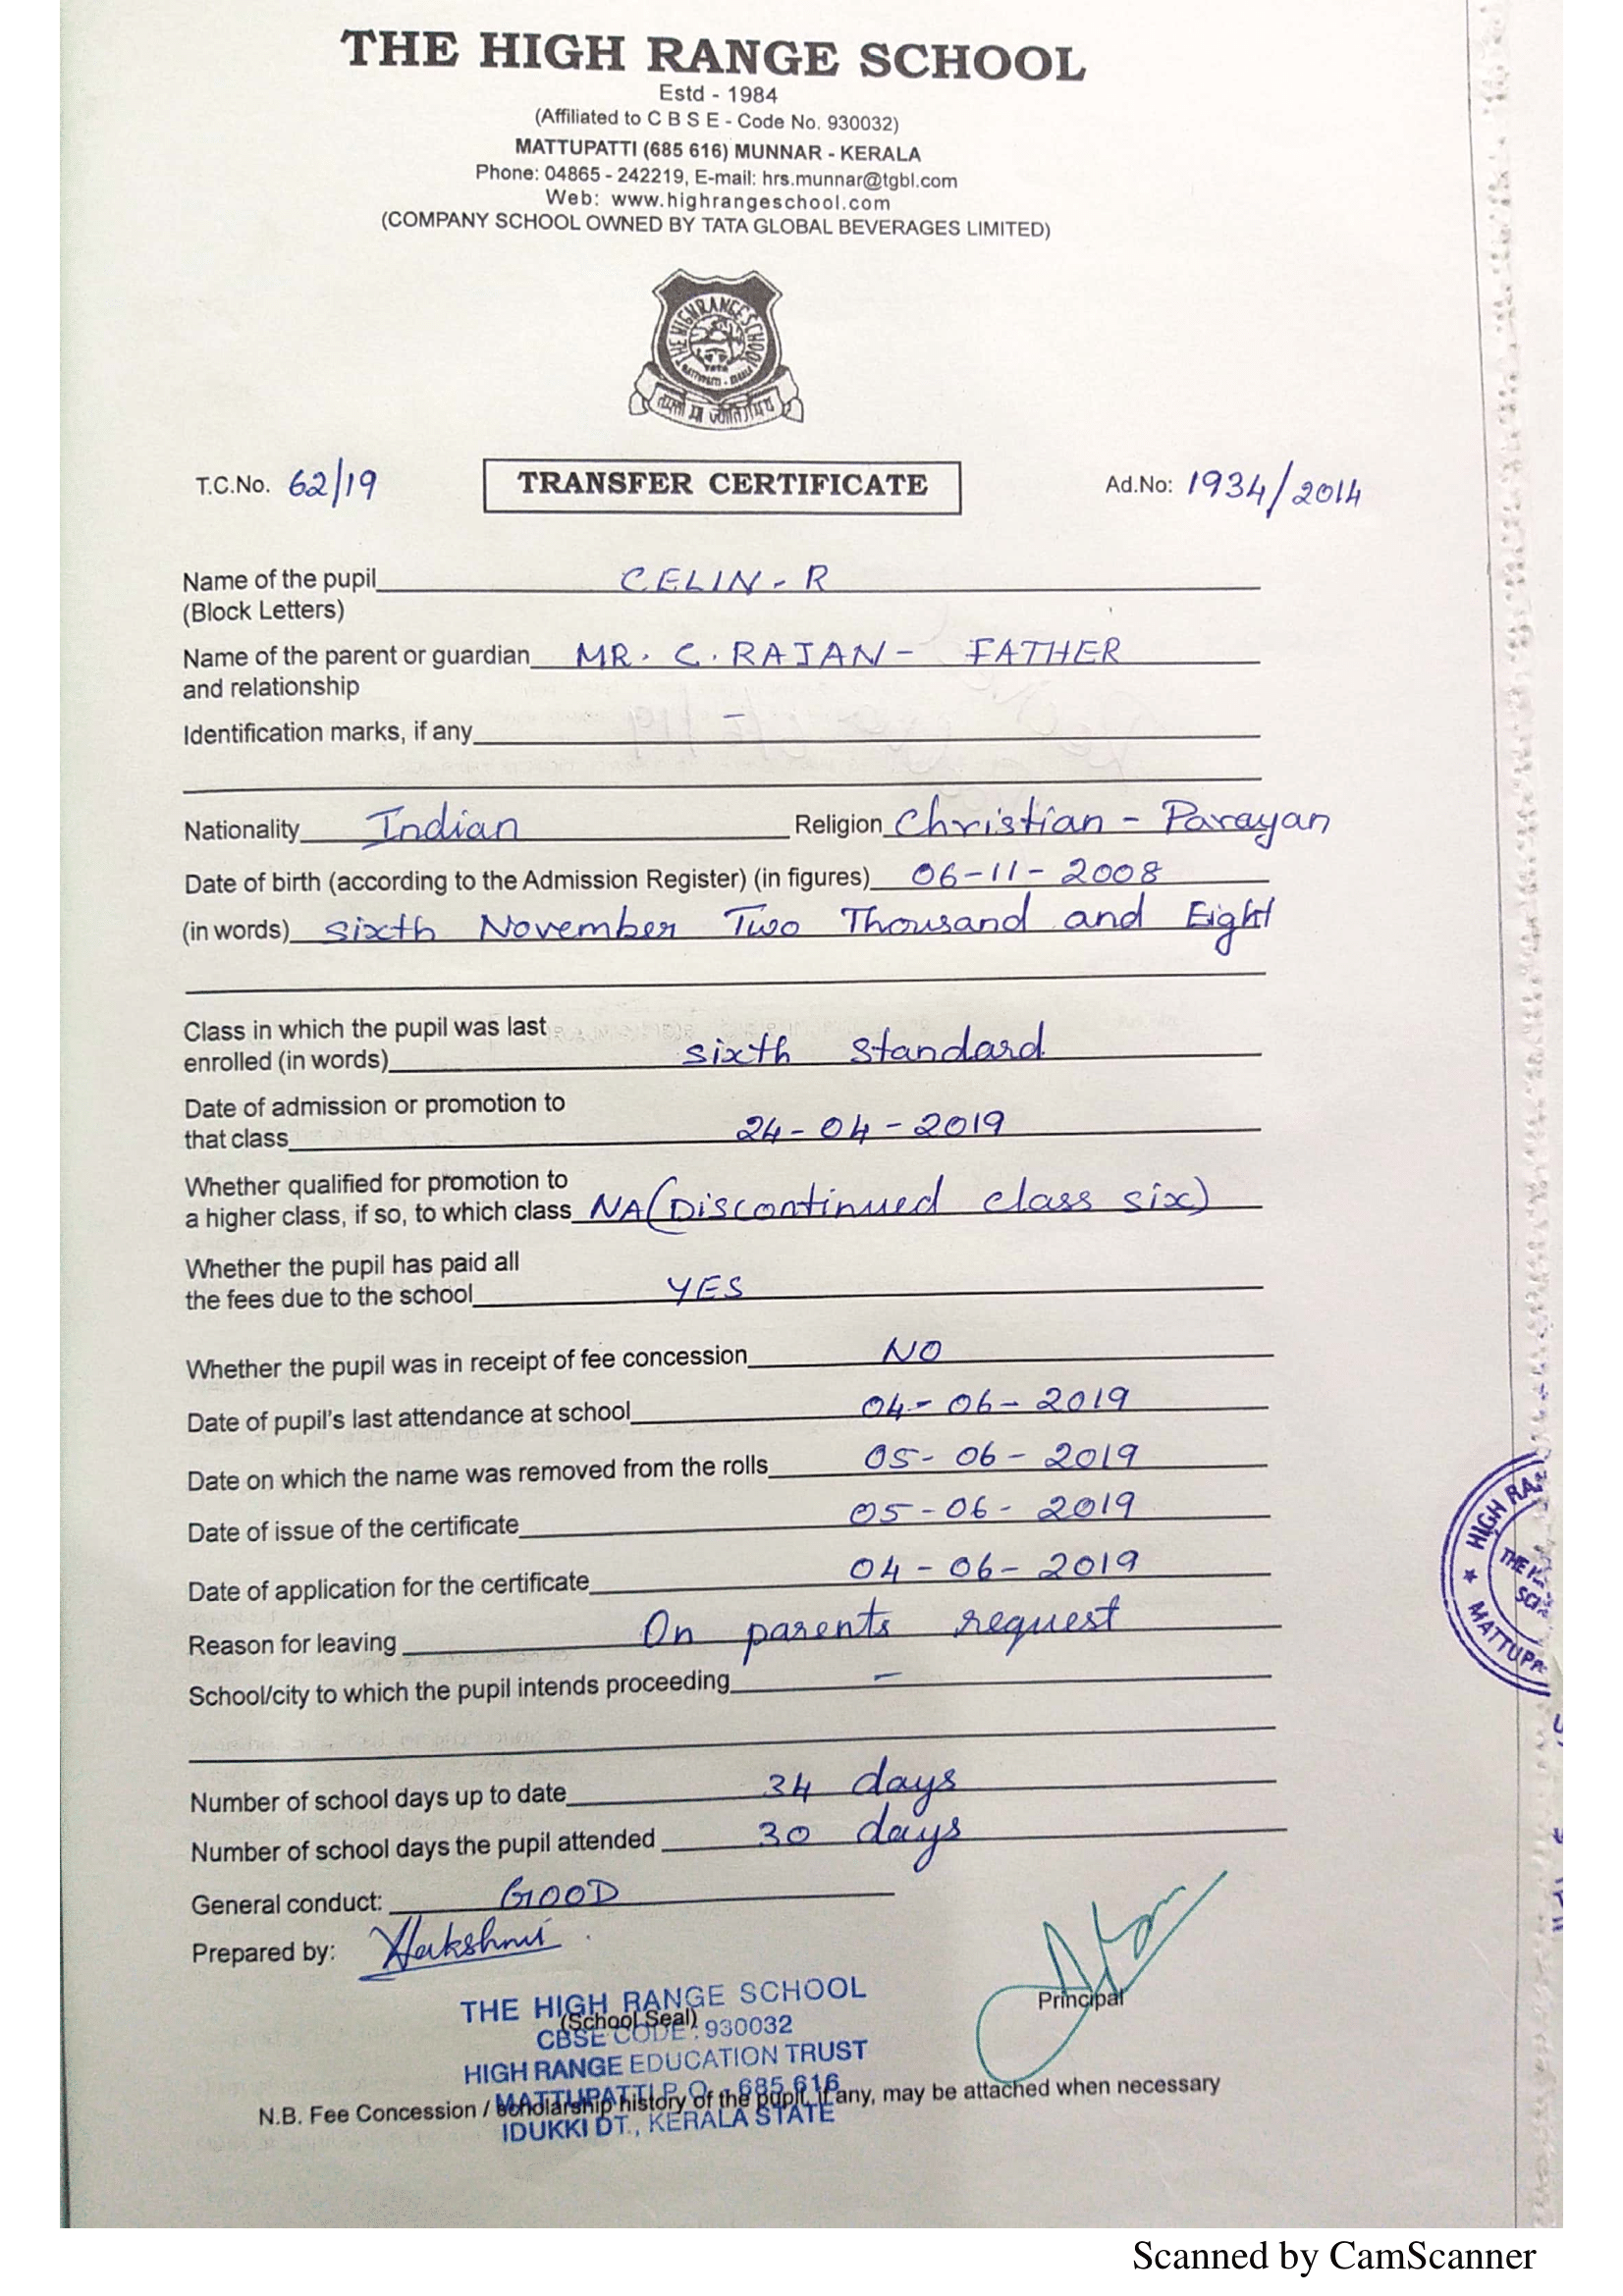 THE HIGH RANGE SCHOOL
Estd - 1984
(Affiliated to C B S E - Code No. 930032)
MATTUPATTI (685 616) MUNNAR - KERALA
Phone: 04865 - 242219, E-mail: hrs.munnar@tgbl.com
Web: www.highrangeschool.com
(COMPANY SCHOOL OWNED BY TATA GLOBAL BEVERAGES LIMITED)
THE HIGH RANGE SCHOOL
T.C.No. 62/19 TRANSFER CERTIFICATE Ad.No: 1934/2014
Name of the pupil CELIN - R
(Block Letters)
Name of the parent or guardian MR. C. RAJAN - FATHER
and relationship
Identification marks, if any –
Nationality Indian Religion Christian - Parayan
Date of birth (according to the Admission Register) (in figures) 06-11-2008
(in words) Sixth November Two Thousand and Eight
Class in which the pupil was last
enrolled (in words) Sixth Standard
Date of admission or promotion to
that class 24-04-2019
Whether qualified for promotion to
a higher class, if so, to which class NA (Discontinued class six)
Whether the pupil has paid all
the fees due to the school YES
Whether the pupil was in receipt of fee concession NO
Date of pupil's last attendance at school 04-06-2019
Date on which the name was removed from the rolls 05-06-2019
Date of issue of the certificate 05-06-2019
Date of application for the certificate 04-06-2019
Reason for leaving On parents request
School/city to which the pupil intends proceeding –
Number of school days up to date 34 days
Number of school days the pupil attended 30 days
General conduct: GOOD
Prepared by:
Principal
THE HIGH RANGE SCHOOL
(School Seal)
CBSE CODE : 930032
HIGH RANGE EDUCATION TRUST
MATTUPATTI P.O. - 685 616
N.B. Fee Concession / scholarship history of the pupil, if any, may be attached when necessary
IDUKKI DT., KERALA STATE
HIGH RA
MATTUPA
Scanned by CamScanner